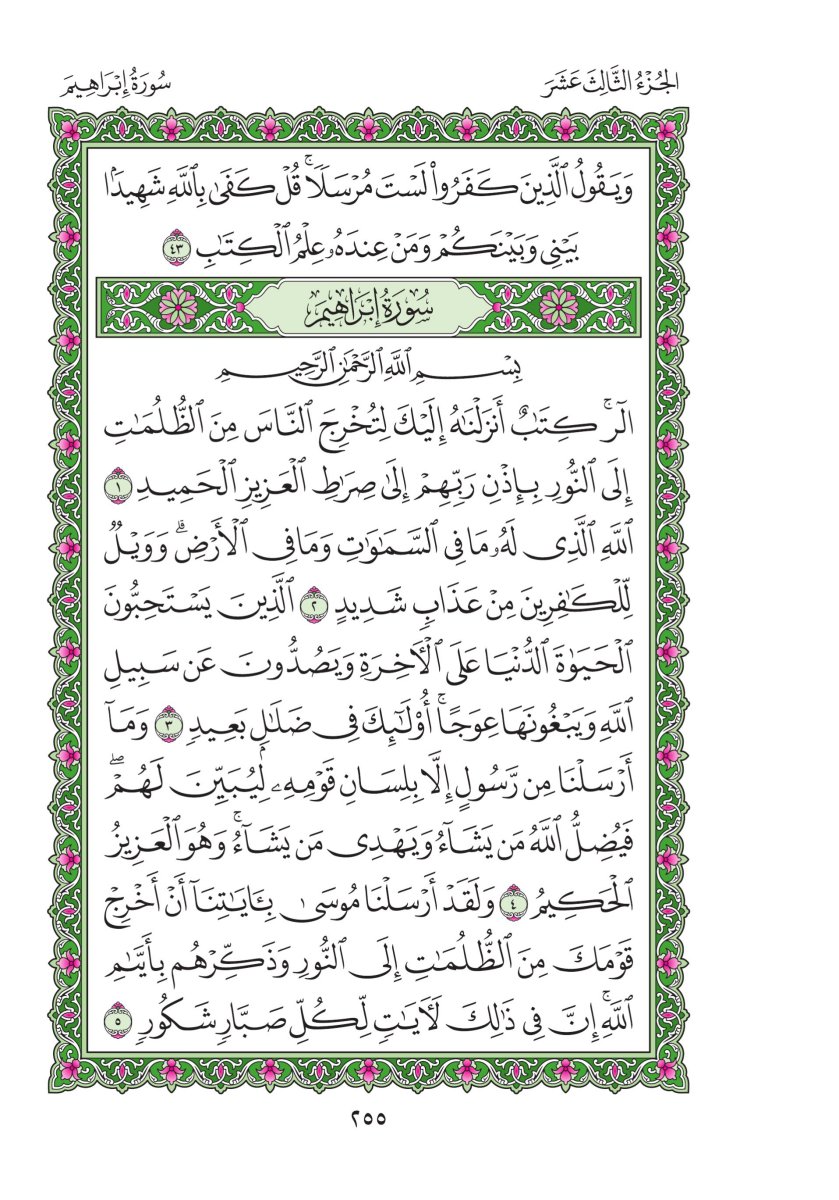 الجُزْءُ الثَّالِثَ عَشَرَ
سُورَةُ إِبْرَاهِيمَ
وَيَقُولُ ٱلَّذِينَ كَفَرُواْ لَسْتَ مُرْسَلٗاۚ قُلْ كَفَىٰ بِٱللَّهِ شَهِيدَۢا
بَيْنِي وَبَيْنَكُمْ وَمَنْ عِندَهُۥ عِلْمُ ٱلْكِتَٰبِ ٤٣
سُورَةُ إِبْرَاهِيم
بِسْمِ ٱللَّهِ ٱلرَّحْمَٰنِ ٱلرَّحِيمِ
الٓرۚ كِتَٰبٌ أَنزَلْنَٰهُ إِلَيْكَ لِتُخْرِجَ ٱلنَّاسَ مِنَ ٱلظُّلُمَٰتِ
إِلَى ٱلنُّورِ بِإِذْنِ رَبِّهِمْ إِلَىٰ صِرَٰطِ ٱلْعَزِيزِ ٱلْحَمِيدِ ١
ٱللَّهِ ٱلَّذِي لَهُۥ مَا فِي ٱلسَّمَٰوَٰتِ وَمَا فِي ٱلْأَرْضِۗ وَوَيْلٞ
لِّلْكَٰفِرِينَ مِنْ عَذَابٖ شَدِيدٍ ٢ ٱلَّذِينَ يَسْتَحِبُّونَ
ٱلْحَيَوٰةَ ٱلدُّنْيَا عَلَى ٱلْأٓخِرَةِ وَيَصُدُّونَ عَن سَبِيلِ
ٱللَّهِ وَيَبْغُونَهَا عِوَجًاۚ أُوْلَٰٓئِكَ فِي ضَلَٰلِۭ بَعِيدٖ ٣ وَمَآ
أَرْسَلْنَا مِن رَّسُولٍ إِلَّا بِلِسَانِ قَوْمِهِۦ لِيُبَيِّنَ لَهُمْۖ
فَيُضِلُّ ٱللَّهُ مَن يَشَآءُ وَيَهْدِي مَن يَشَآءُۚ وَهُوَ ٱلْعَزِيزُ
ٱلْحَكِيمُ ٤ وَلَقَدْ أَرْسَلْنَا مُوسَىٰ بِـَٔايَٰتِنَآ أَنْ أَخْرِجْ
قَوْمَكَ مِنَ ٱلظُّلُمَٰتِ إِلَى ٱلنُّورِ وَذَكِّرْهُم بِأَيَّىٰمِ
ٱللَّهِۚ إِنَّ فِي ذَٰلِكَ لَأٓيَٰتٖ لِّكُلِّ صَبَّارٖ شَكُورٖ ٥
٢٥٥